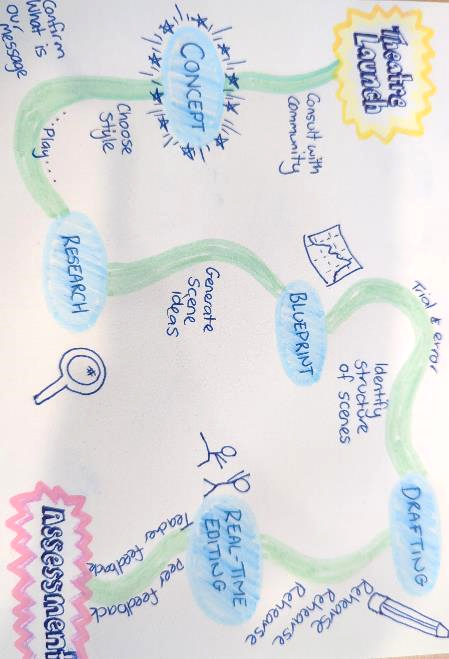 Theatre
Launch
Consult with
community
CONCEPT
Choose
Style
Confirm
What is
our
message
... Play ...
RESEARCH
Generate
Scene
Ideas
BLUEPRINT
Identify
structure
of scenes
Trial & error
DRAFTING
Rehearse
Rehearse
Rehearse
REAL-TIME
EDITING
Teacher feedback
peer feedback
Assessment